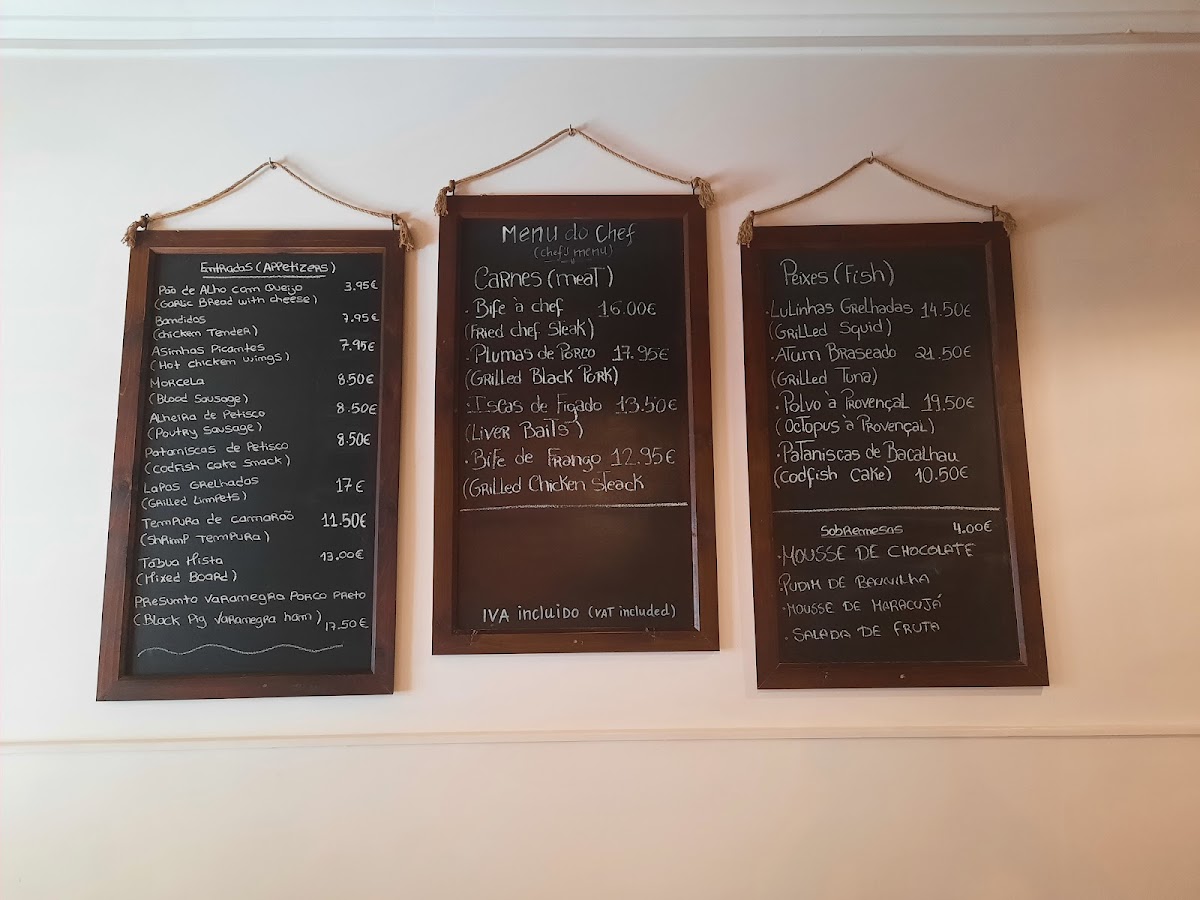 Entradas (Appetizers)
Pão de Alho com Queijo 3.95€
(Garlic Bread with cheese)
Bandidos 7.95€
(Chicken Tender)
Asinhas Picantes 7.95€
(Hot chicken wings)
Morcela 8.50€
(Blood Sausage)
Alheira de Petisco 8.50€
(Poutry Sausage)
Pataniscas de Petisco 8.50€
(Codfish cake snack)
Lapas Grelhadas 17€
(Grilled Limpets)
Tempura de camarão 11.50€
(Shrimp Tempura)
Tábua Mista 13.00€
(Mixed Board)
Presunto Varamegra Porco Preto
(Black Pig Varamegra ham) 17.50€
Menu do Chef
(Chef's menu)
Carnes (meat)
· Bife à chef 16.00€
(Fried chef Steak)
· Plumas de Porco 17.95€
(Grilled Black Pork)
· Iscas de Figado 13.50€
(Liver Bails)
· Bife de Frango 12.95€
(Grilled Chicken Steack
IVA incluido (VAT included)
Peixes (Fish)
· Lulinhas Grelhadas 14.50€
(Grilled Squid)
· Atum Braseado 21.50€
(Grilled Tuna)
· Polvo à Provençal 19.50€
(Octopus à Provençal)
· Pataniscas de Bacalhau
(Codfish Cake) 10.50€
Sobremesas 4.00€
· MOUSSE DE CHOCOLATE
· PUDIM DE BAUNILHA
· MOUSSE DE MARACUJÁ
· SALADA DE FRUTA